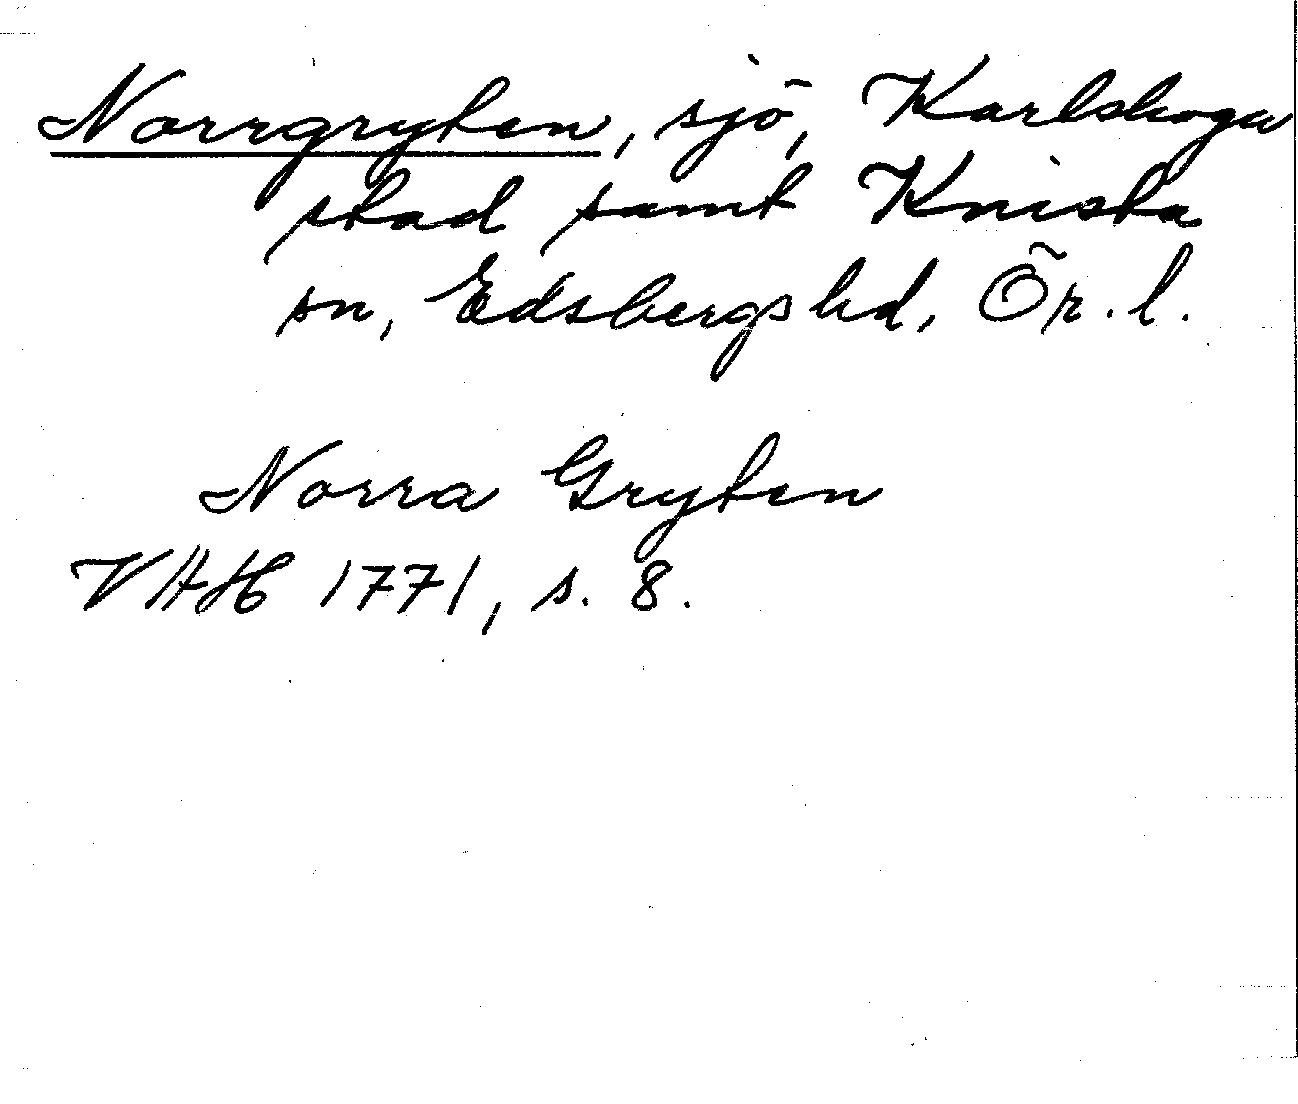 Norrgryten, sjö, Karlskoga
stad samt Knista
sn, Edsbergs hd, Ör. l.
Norra Gryten
VAH 1771, s. 8.